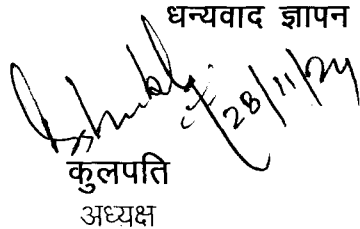 धन्यवाद ज्ञापन
28/11/24
कुलपति
अध्यक्ष